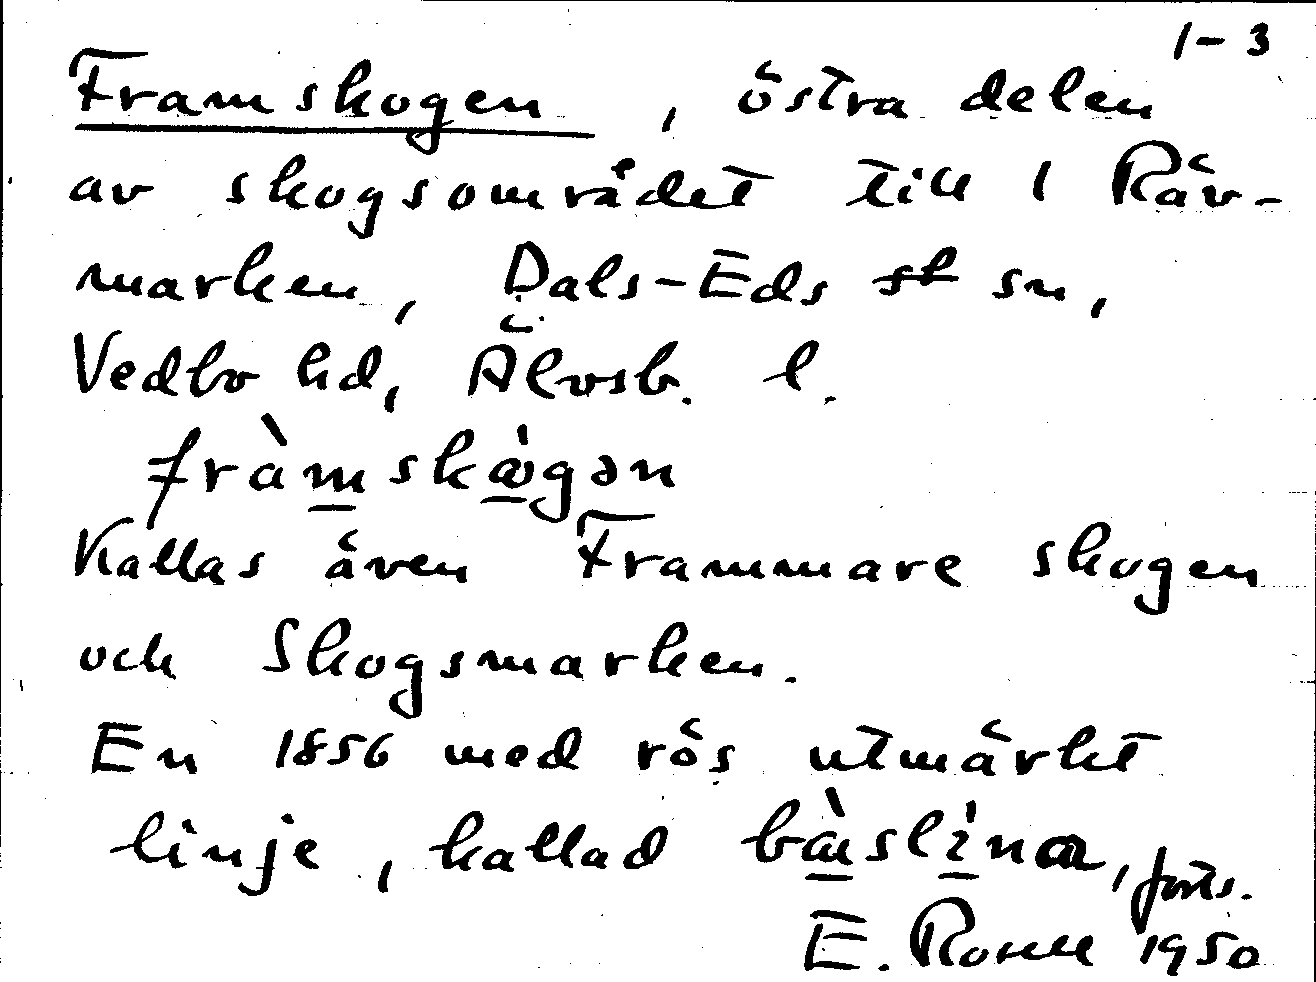 1-3
Framskogen, östra delen
av skogsområdet till 1 Räv-
marken, Dals-Eds sn,
Vedbo hd, Älvsb. l.
Kallas även Frammare skogen
och Skogsmarken.
En 1856 med rös utmärkt
linje, kallad
forts.
E. Rosell 1950